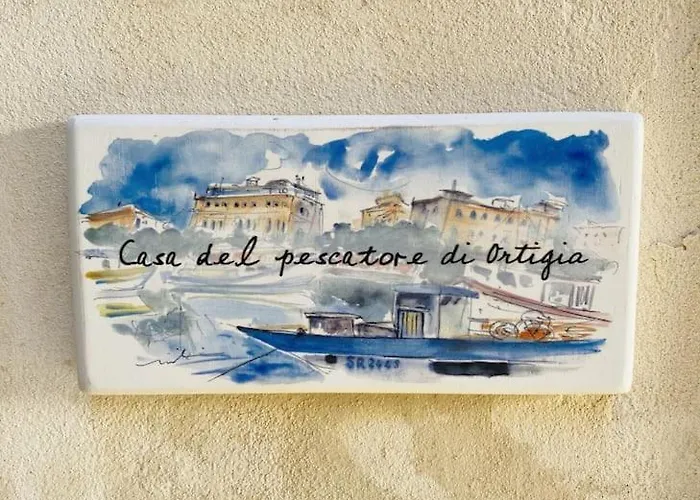 Casa del pescatore di Ortigia